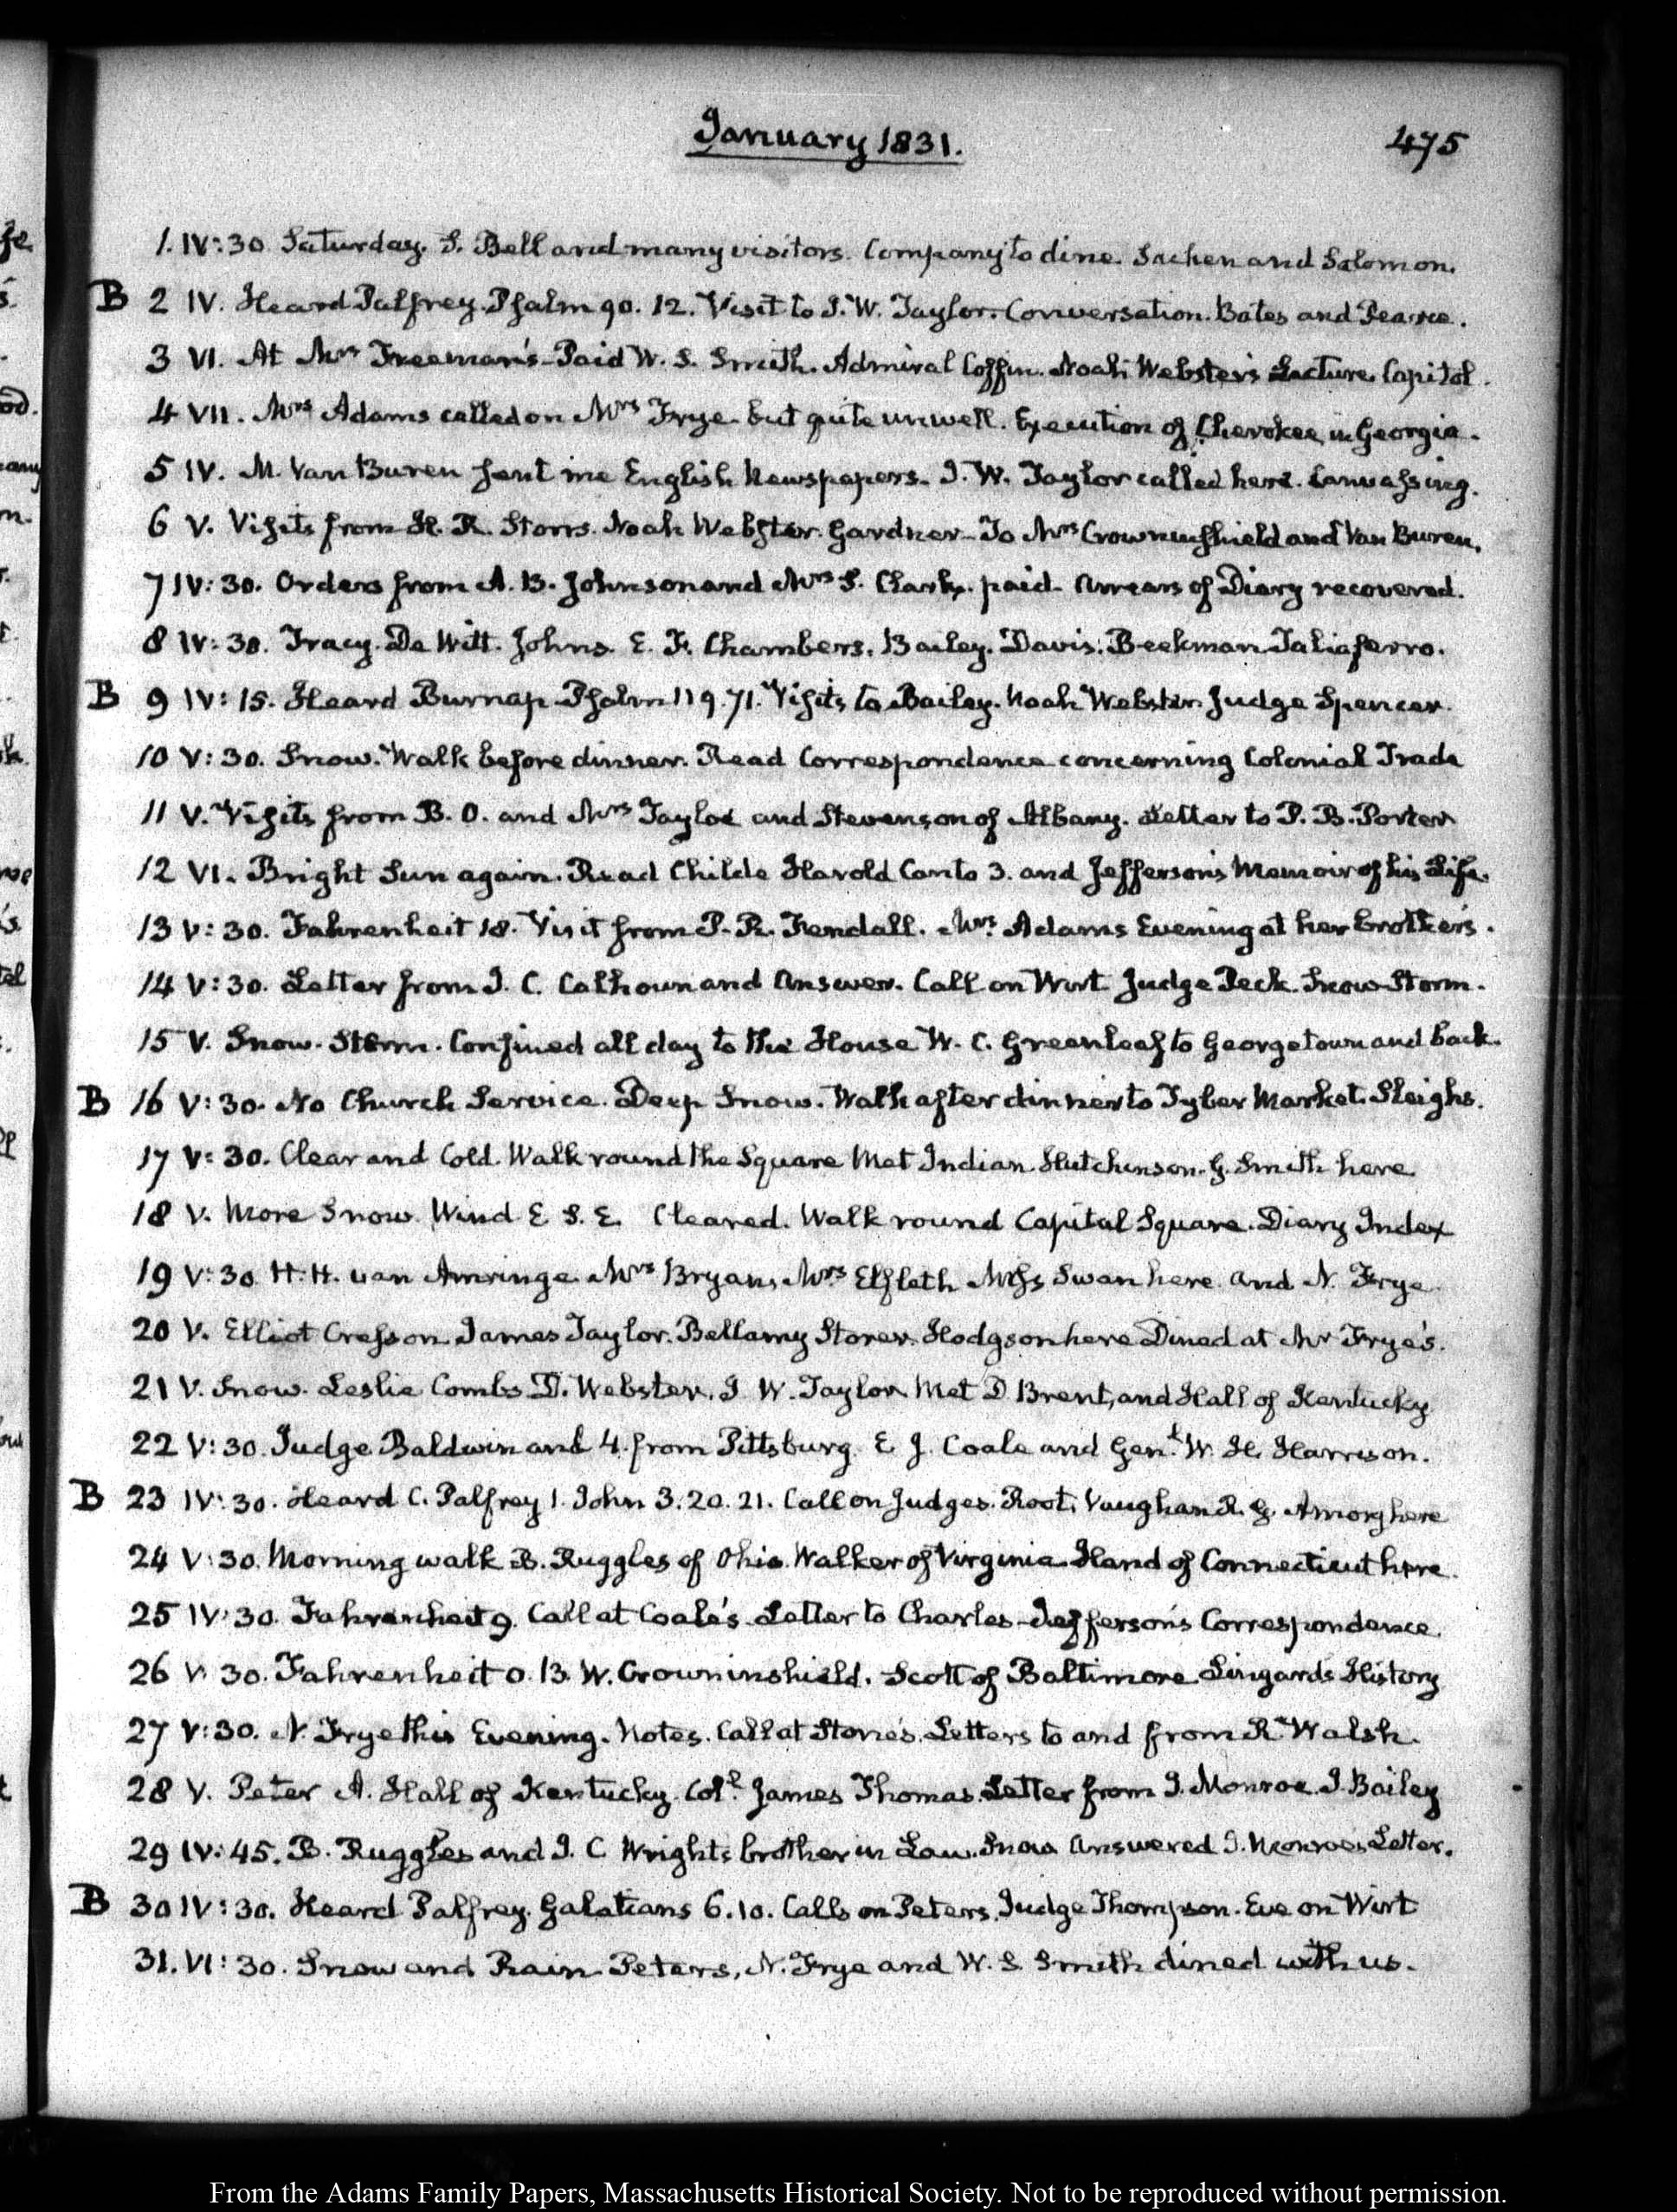 January 1831.
475
1. IV:30. Saturday. S. Bell and many visitors. Company to dine. Sachen and Salomon.
B 2 IV. Heard Palfrey. Psalm 90. 12. Visit to J. W. Taylor. Conversation. Bates and Pearce.
3 VI. At Mrs Freeman's. Paid W. S. Smith. Admiral Coffin. Noah Webster's Lecture. Capitol.
4 VII. Mrs Adams called on Mrs Frye. but quite unwell. Execution of Cherokee in Georgia.
5 IV. M. Van Buren sent me English Newspapers. J. W. Taylor called here. Canvassing.
6 V. Visits from H. R. Storrs. Noah Webster. Gardner. To Mrs Crowninshield and Van Buren.
7 IV:30. Orders from A. B. Johnson and Mrs S. Clark. paid. Arrears of Diary recovered.
8 IV:30. Tracy. De Witt. Johns. E. F. Chambers. Bailey. Davis. Beekman. Taliaferro.
B 9 IV:15. Heard Burnap. Psalm 119. 71. Visits to Bailey. Noah Webster. Judge Spencer.
10 V:30. Snow. Walk before dinner. Read Correspondence concerning Colonial Trade
11 V. Visits from B. O. and Mrs Tayloe and Stevenson of Albany. Letter to P. B. Porter
12 VI. Bright Sun again. Read Childe Harold Canto 3. and Jefferson's Memoir of his Life.
13 V:30. Fahrenheit 18. Visit from P. R. Fendall. Mrs. Adams Evening at her brother's.
14 V:30. Letter from J. C. Calhoun and Answer. Call on Wirt. Judge Peck. Snow-Storm.
15 V. Snow-Storm. Confined all day to the House. W. C. Greenleaf to Georgetown and back.
B 16 V:30. No Church Service. Deep Snow. Walk after dinner to Tyber Market. Sleighs.
17 V:30. Clear and Cold. Walk round the Square Met Indian. Hutchinson. G. Smith here.
18 V. More Snow. Wind E S. E. Cleared. Walk round Capitol Square. Diary Index
19 V:30 H. H. van Amringe. Mrs Bryan, Mrs Elfleth Miss Swan here. and N. Frye
20 V. Elliot Cresson. James Taylor. Bellamy Storer. Hodgson here Dined at Mr Frye's.
21 V. Snow. Leslie Combs. D. Webster. J W. Taylor. Met D Brent, and Hall of Kentucky
22 V:30. Judge Baldwin and 4. from Pittsburg. E J. Coale and Genl. W. H. Harrison.
B 23 IV:30. Heard C. Palfrey 1. John 3. 20. 21. Call on Judges. Root. Vaughan R. G. Amory here
24 V:30. Morning walk B. Ruggles of Ohio. Walker of Virginia. Hand of Connecticut here.
25 IV:30. Fahrenheit 9. Call at Coale's. Letter to Charles. Jefferson's Correspondence.
26 V:30. Fahrenheit 0. B. W. Crowninshield. Scott of Baltimore. Lingards History
27 V:30. N. Frye this Evening. Notes. Call at Stone's. Letters to and from R Walsh.
28 V. Peter A. Hall of Kentucky. Coll. James Thomas. Letter from J. Monroe. J. Bailey
29 IV:45. B. Ruggles and J. C Wright's brother in Law. Snow Answered J. Monroes Letter.
B 30 IV:30. Heard Palfrey. Galatians 6. 10. Calls on Peters. Judge Thompson. Eve on Wirt
31. VI:30. Snow and Rain. Peters, N. Frye and W. S Smith dined with us.
From the Adams Family Papers, Massachusetts Historical Society. Not to be reproduced without permission.